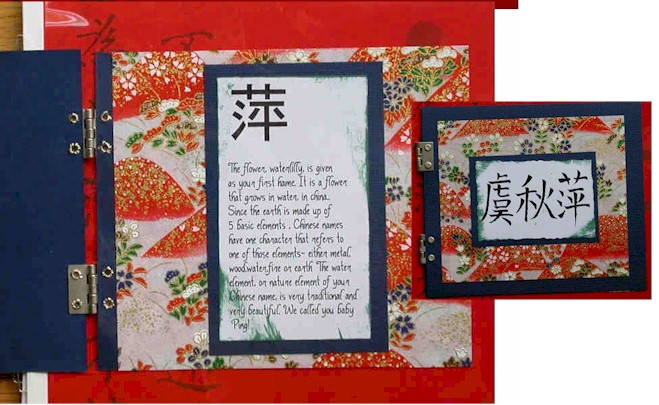 萍
The flower, waterlilly, is given
as your first name. It is a flower
that grows in water, in china.
Since the earth is made up of
5 basic elements , Chinese names
have one character that refers to
one of those elements- either metal,
wood,water,fire or earth. The water
element, or nature element of your
Chinese name, is very traditional and
very beautiful. We called you baby
"Ping!
虞秋萍